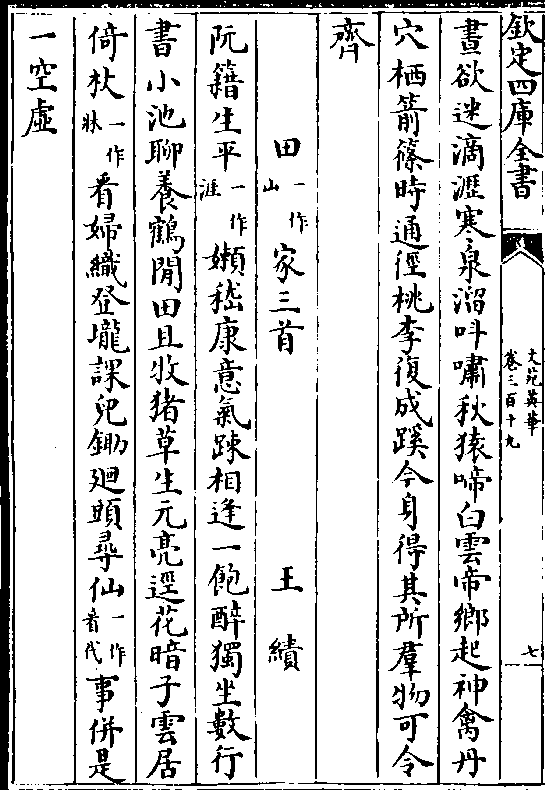 欽定四庫全書
文苑英華
卷三百十九
七
晝欲迷滴瀝寒泉溜叫嘯秋猿啼白雲帝鄉起神禽丹
穴栖箭篠時通徑桃李復成蹊今身得其所羣物可令
齊
田一作山家三首 王績
阮籍生平一作涯嬾嵇康意氣踈相逢一飽醉獨坐數行
書小池聊養鶴閒田且牧猪草生元亮逕花暗子雲居
倚杖一作牀看婦織登壠課兒鋤廻頭尋仙一作看代事併是
一空虛